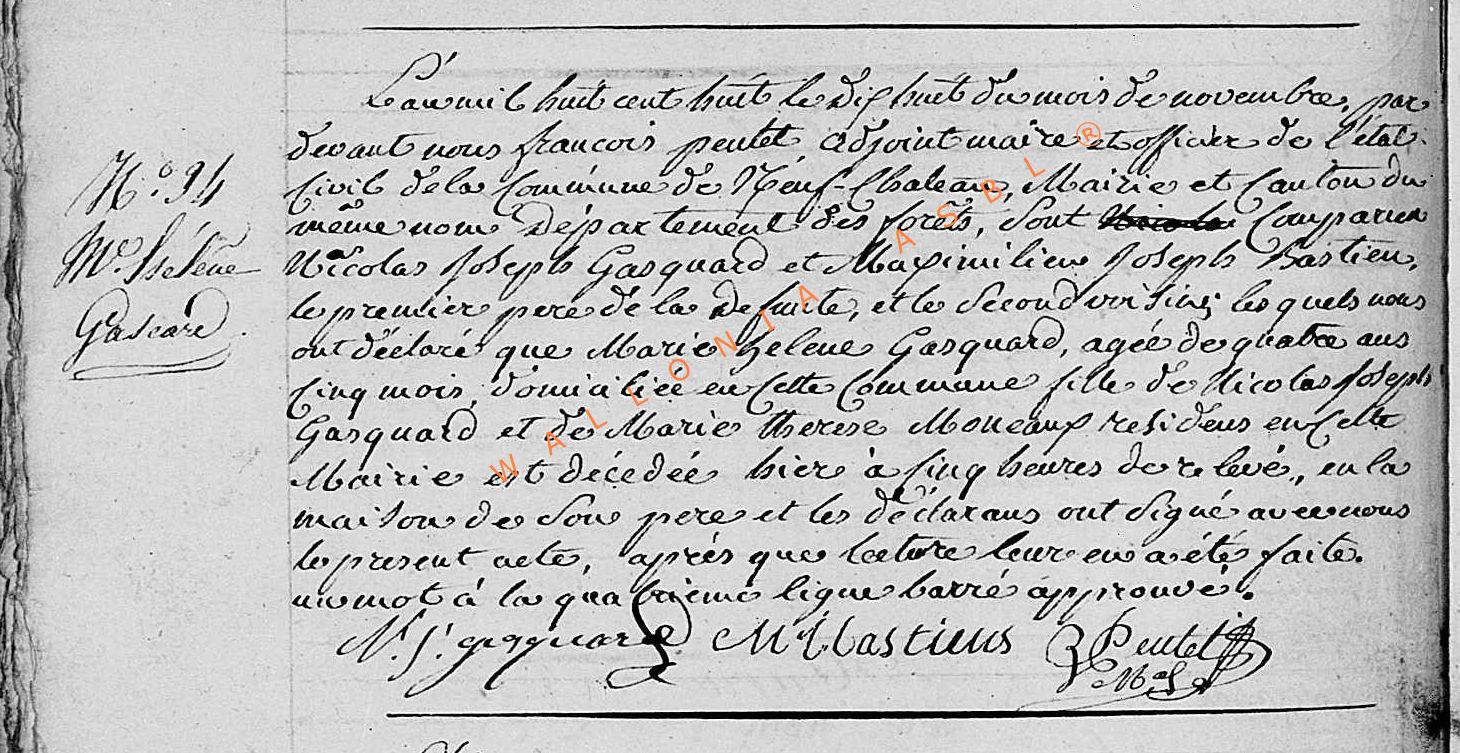 N.o 94
M.e Helêne
Gascard
L'an mil huit cent huit le dix huit du mois de novembre, par
devant nous francois pentet, adjoint maire et officier de l'état
Civil de la Commune de Neuf-Chateau, Mairie et Canton du
même nom Département des forêts, sont Nicolas Comparus
Nicolas Joseph Gasquard et Maximilien Joseph Bastien,
le premier pere de la defunte, et le second voisin; les quels nous
ont déclaré que Marie helene Gasquard, agée de quatre ans
Cinq mois, domiciliée en Cette Commune fille de Nicolas Joseph
Gasquard et de Marie therese Moneaux residens en Cette
Mairie est décédée hier à Cinq heures de relevé, en la
maison de son pere et les déclarans ont signé avec nous
le present acte, après que lecture leur en a été faite.
un mot à la quatrieme ligne barré approuvé.
N. J. gasquard M J Bastiens Pentet
WALLONIA ASBL ®